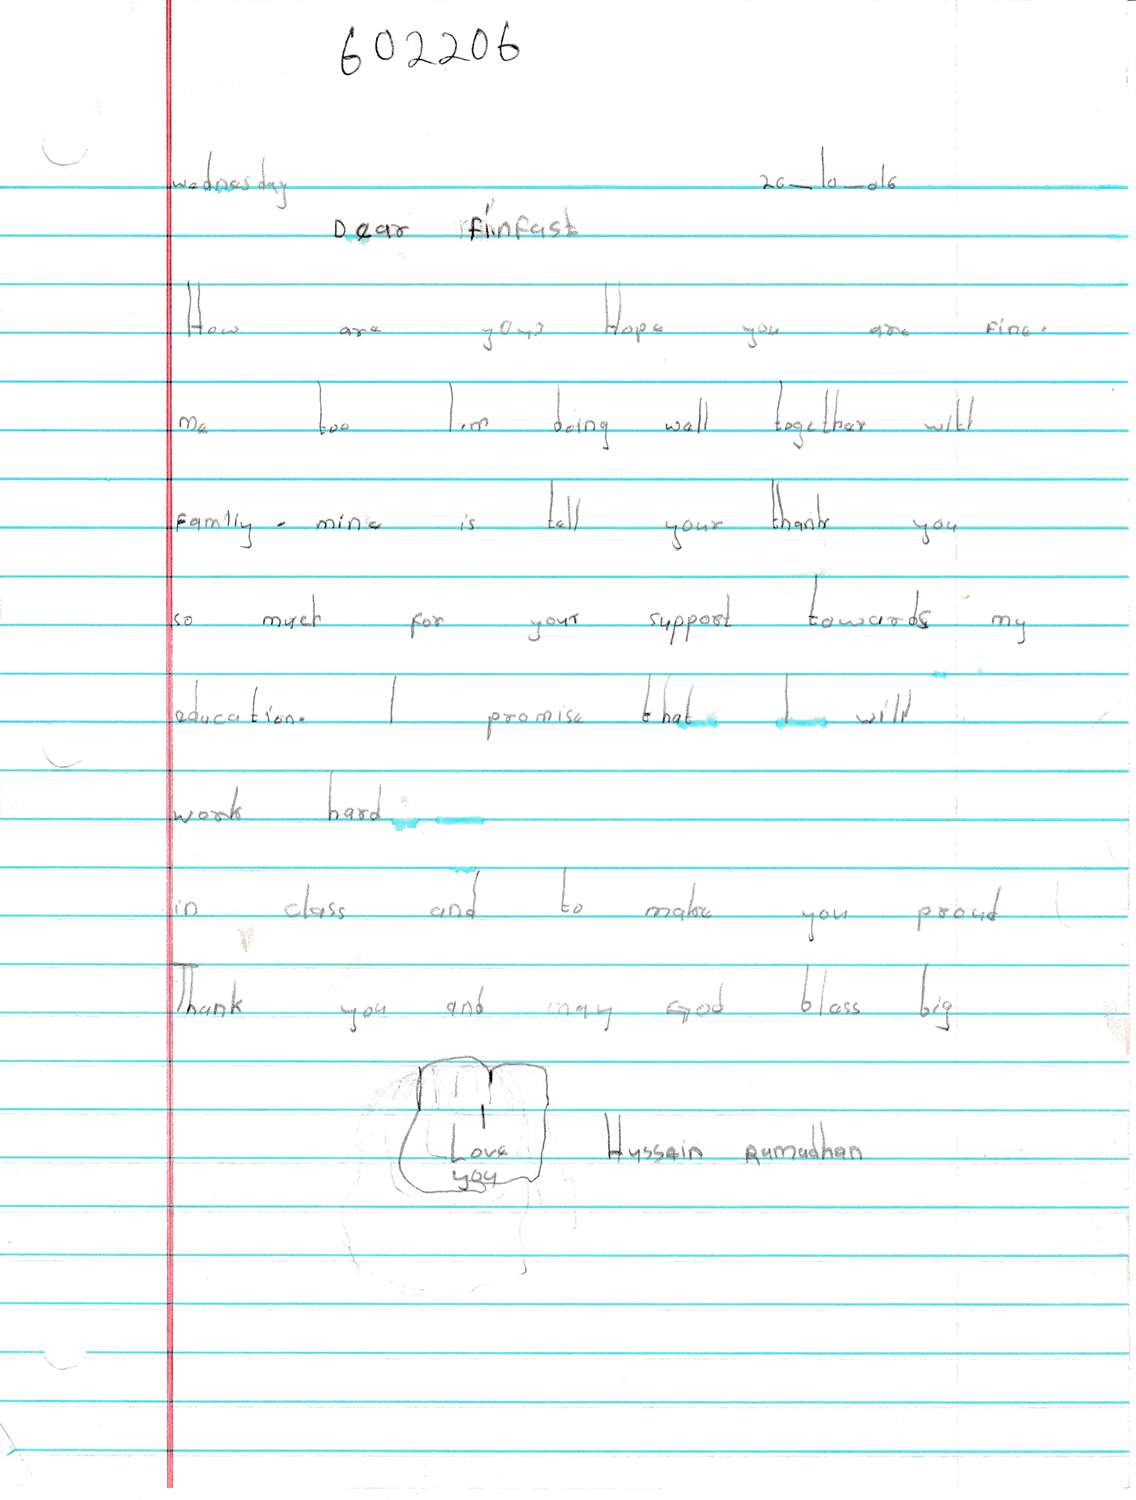 602206
wednesday 26_10_016
Dear Finfast
How are you? Hope you are fine.
me too I.m doing well together with
Family. mine is tell your thank you
so much for your support towards my
education. I promise that I will
work hard
in class and to make you proud
Thank you and may God bless big
I
Love
you
Hussein Ramadhan